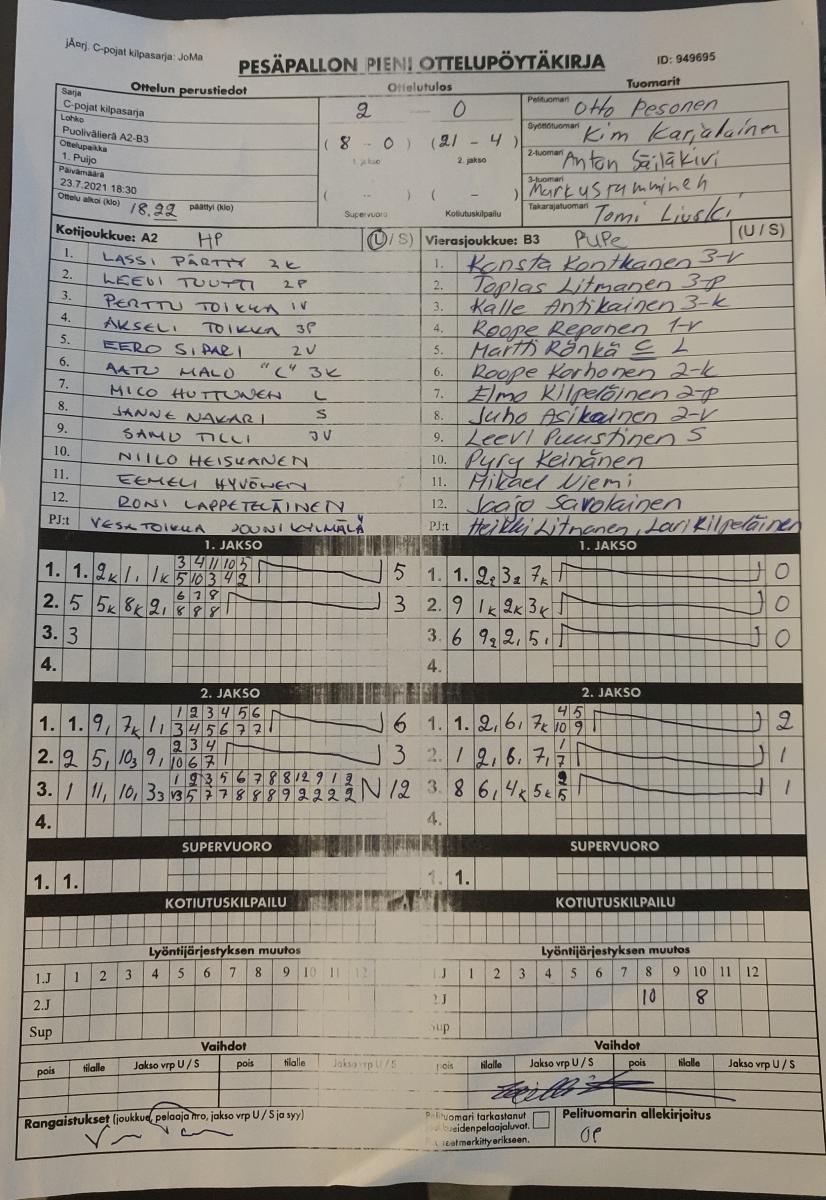 jÄ¤rj. C-pojat kilpasarja: JoMa
PESÄPALLON PIENI OTTELUPÖYTÄKIRJA
ID: 949695
Ottelun perustiedot Ottelutulos Tuomarit
Sarja
C-pojat kilpasarja
Lohko
Puolivälierä A2-B3
Ottelupaikka
1. Puijo
Päivämäärä
23.7.2021 18:30
Ottelu alkoi (klo) 18.22 päättyi (klo)
2 - 0
(8 - 0) (21 - 4)
1. jakso 2. jakso
( -- ) ( - )
Supervuoro Kotiutuskilpailu
Pelituomari Otto Pesonen
Syöttötuomari Kim Karjalainen
2-tuomari Anton Säiläkivi
3-tuomari Markus
Takarajatuomari Tomi
Kotijoukkue: A2 HP (U / S)
1. LASSI PÄRTTY 2K
2. LEEVI TUUTTI 2P
3. PERTTU TOIKKA 1V
4. AKSELI TOIKKA 3P
5. EERO SIPARI 2V
6. AATU MALO "C" 3K
7. MICO HUTTUNEN L
8. JANNE NAKARI S
9. SAMU TILLI 3V
10. NIILO HEISKANEN
11. EEMELI HYVÖNEN
12. RONI LAPPETELÄINEN
PJ:t VESA TOIKKA JOUNI KYLMÄLÄ
Vierasjoukkue: B3 PuPe (U / S)
1. Konsta Kontkanen 3-v
2. Topias Litmanen 3-p
3. Kalle Antikainen 3-k
4. Roope Reponen 1-v
5. Martti Ränkä C L
6. Roope Korhonen 2-k
7. Elmo Kilpeläinen 2-p
8. Juho Asikainen 2-v
9. Leevi Puustinen S
10. Pyry Keinänen
11. Mikael Niemi
12. Jaajo Savolainen
PJ:t Heikki Litmanen, Lari Kilpeläinen
1. JAKSO
1. 1. 2K 1, 1K 3 4 11 10 5 5
5 10 3 4 2
2. 5 5K 8K 2, 6 7 8 3
8 8 8
3. 3
4.
1. JAKSO
1. 1. 2₂ 3₂ 7K 0
2. 9 1K 2K 3K 0
3. 6 9₂ 2, 5, 0
4.
2. JAKSO
1. 1. 9, 7K 1, 1 2 3 4 5 6 6
3 4 5 6 7 7
2. 2 5, 10₃ 9, 2 3 4 3
10 6 7
3. 1 11, 10, 3₃ 1 2 3 5 6 7 8 8 12 9 1 2 N 12
13 5 7 7 8 8 8 9 2 2 2 2
4.
2. JAKSO
1. 1. 2, 6, 7K 4 5 2
10 9
2. 1 2, 6, 7, 1 1
7
3. 8 6, 4K 5K 2 1
5
4.
SUPERVUORO
1. 1.
SUPERVUORO
1. 1.
KOTIUTUSKILPAILU
KOTIUTUSKILPAILU
Lyöntijärjestyksen muutos
1.J 1 2 3 4 5 6 7 8 9 10 11 12
2.J
Sup
Lyöntijärjestyksen muutos
J 1 2 3 4 5 6 7 8 9 10 11 12
2 J 10 8
up
Vaihdot
pois tilalle Jakso vrp U / S pois tilalle Jakso vrp U / S
Vaihdot
pois tilalle Jakso vrp U / S pois tilalle Jakso vrp U / S
Rangaistukset (joukkue, pelaaja nro, jakso vrp U / S ja syy)
Pelituomari tarkastanut
pelaajaluvat.
merkitty erikseen.
Pelituomarin allekirjoitus
OP